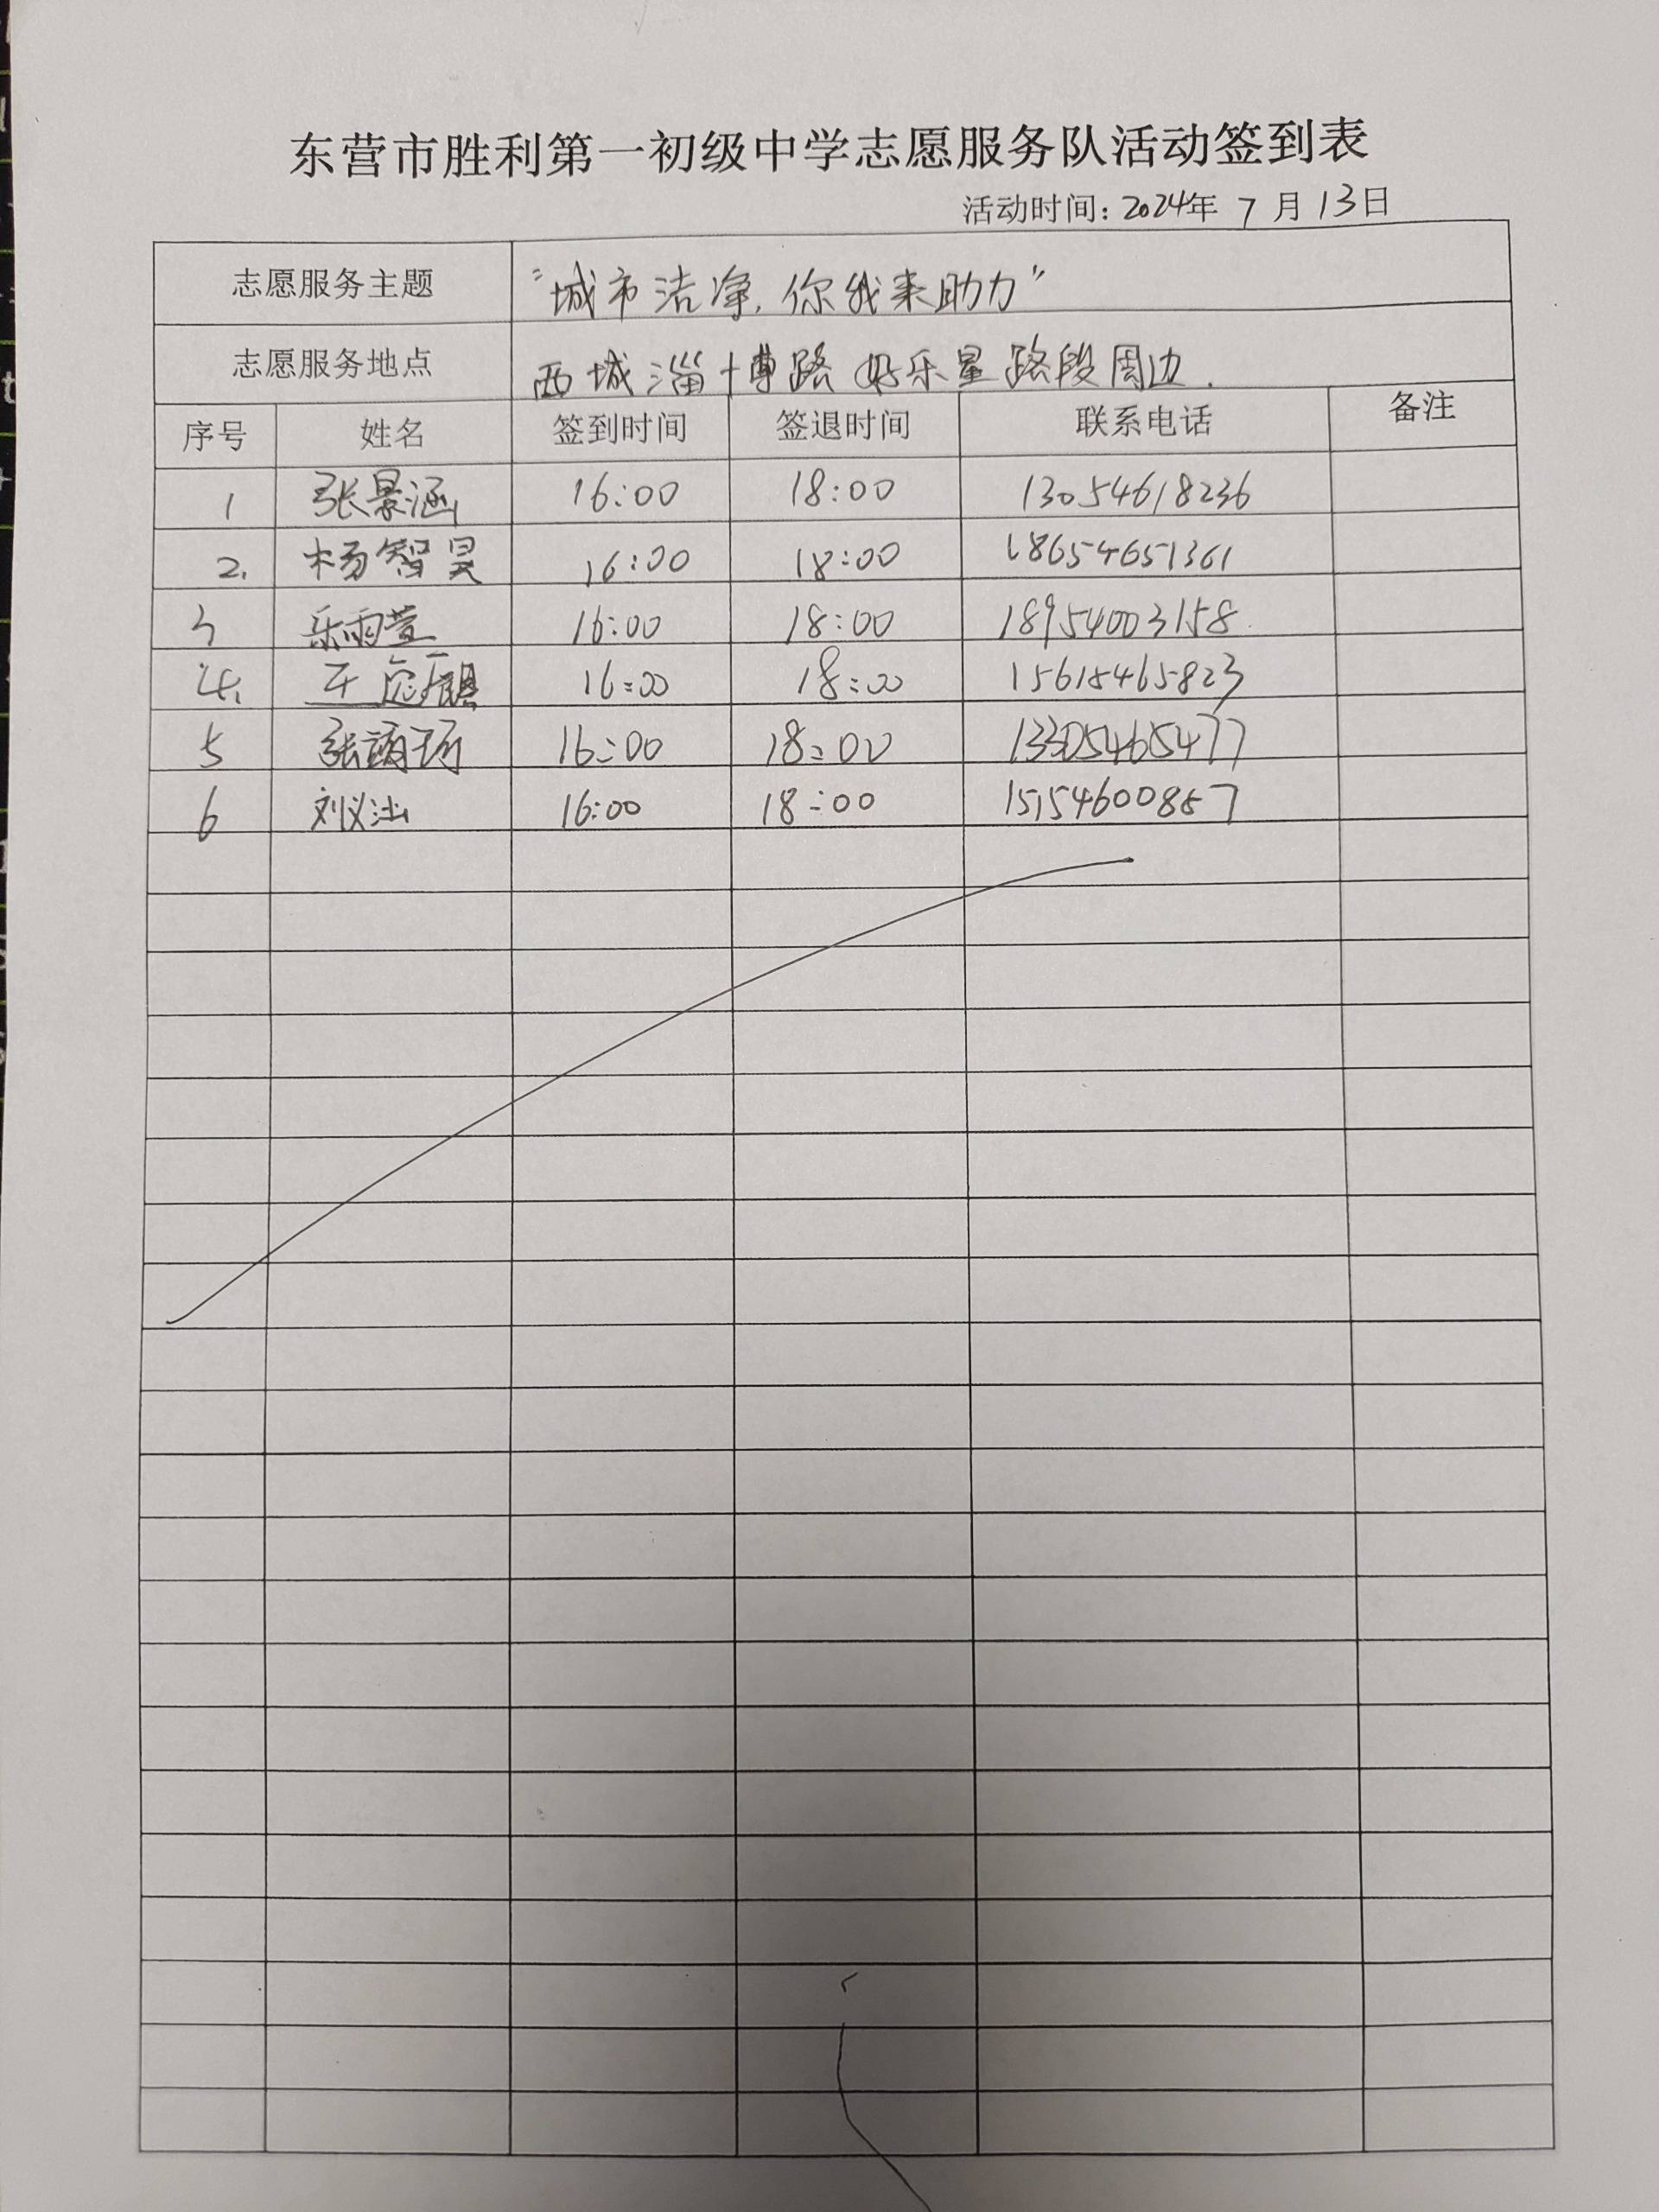 东营市胜利第一初级中学志愿服务队活动签到表
活动时间：2024年 7 月 13日
志愿服务主题 "城市洁净，你我来助力"
志愿服务地点 西城淄博路好乐星路段周边.
序号 姓名 签到时间 签退时间 联系电话 备注
1 张景涵 16:00 18:00 13054618236
2. 杨智昊 16:00 18:00 18654651361
3 乐雨萱 16:00 18:00 18954003158
4. 王 16:00 18:00 15615465823
5 张 16:00 18:00 13305465477
6 刘义 16:00 18:00 15154600857